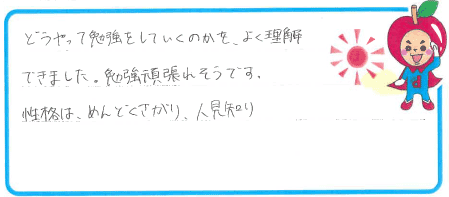 どうやって勉強をしていくのかを、よく理解
できました。勉強頑張れそうです。
性格は、めんどくさがり、人見知り